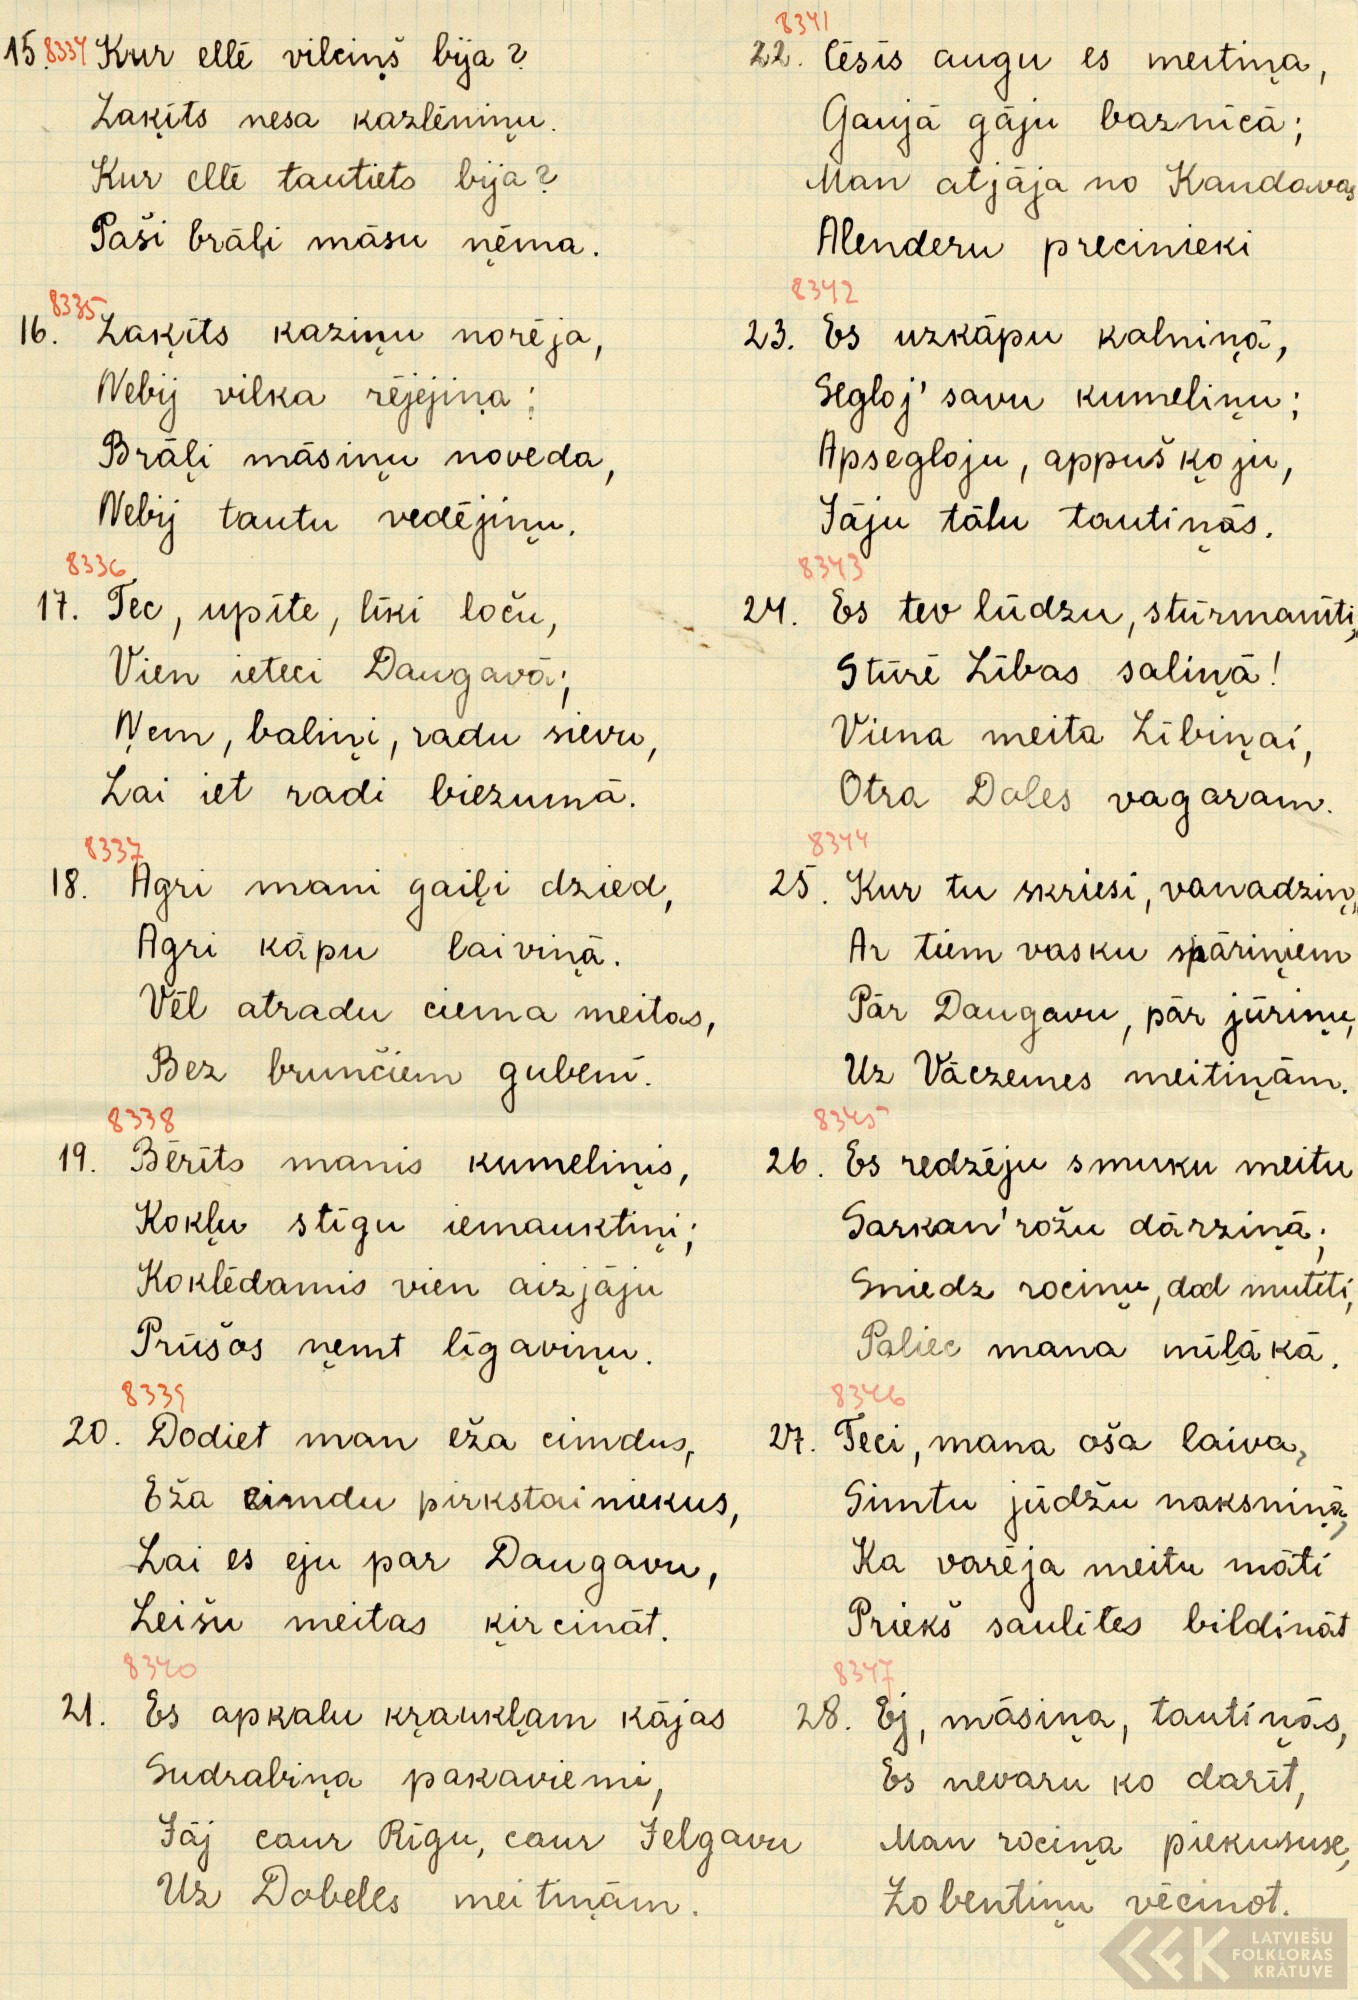 15. 8334 Kur ellē vilciņš bija?
Zaķīts nesa kazlēniņu.
Kur ellē tautiets bija?
Paši brāļi māsu ņēma.
8335
16. Zaķīts kaziņu norēja,
Nebij vilka rējejiņa;
Brāļi māsiņu noveda,
Nebij tautu vedējiņu.
8336
17. Tec, upīte, līki loču,
Vien ieteci Daugavā;
Ņem, baliņi, radu sievu,
Lai iet radi biezumā.
8337
18. Agri mani gaiļi dzied,
Agri kāpu laiviņā.
Vēl atradu ciema meitas,
Bez brunčiem gubenī.
8338
19. Bērīts manis kumeliņis,
Kokļu stīgu iemauktiņi;
Koklēdamis vien aizjāju
Prūšos ņemt līgaviņu.
8339
20. Dodiet man eža cimdus,
Eža cimdu pirkstainiekus,
Lai es eju par Daugavu,
Leišu meitas ķircināt.
8340
21. Es apkalu kŗaukļam kājas
Sudrabiņa pakaviemi,
Jāj caur Rīgu, caur Jelgavu
Uz Dobeles meitiņām.
8341
22. Cēsīs augu es meitiņa,
Gaujā gāju baznīcā;
Man atjāja no Kandavas
Alenderu precinieki
8342
23. Es uzkāpu kalniņā,
Segloj' savu kumeliņu;
Apsegloju, appušķoju,
Jāju tālu tautiņās.
8343
24. Es tev lūdzu, stūrmanīti,
Stūrē Lības saliņā!
Viena meita Lībiņai,
Otra Doles vagaram.
8344
25. Kur tu skriesi, vanadziņ,
Ar tiem vasku spāriņiem
Pār Daugavu, pār jūriņu,
Uz Vāczemes meitiņām.
8345
26. Es redzēju smuku meitu
Sarkan' rožu dārziņā;
Sniedz rociņu, dod mutīti,
Paliec mana mīļākā.
8346
27. Teci, mana oša laiva,
Simtu jūdžu naksniņā,
Ka varēja meitu māti
Priekš saulītes bildināt
8347
28. Ej, māsiņa, tautiņās,
Es nevaru ko darīt,
Man rociņa piekususe,
Zobentiņu vēcinot.
LATVIEŠU
FOLKLORAS
KRĀTUVE